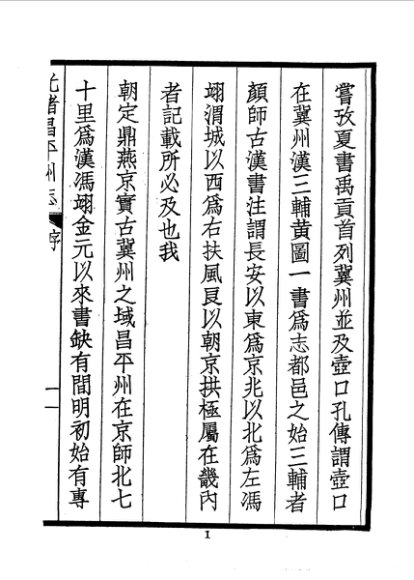 嘗攷夏書禹貢首列冀州並及壺口孔傳謂壺口
在冀州漢三輔黃圖一書爲志都邑之始三輔者
顏師古漢書注謂長安以東爲京兆以北爲左馮
翊渭城以西爲右扶風良以朝京拱極屬在畿內
者記載所必及也我
朝定鼎燕京實古冀州之域昌平州在京師北七
十里爲漢馮翊金元以來書缺有間明初始有專
光緒昌平州志
序
一
1